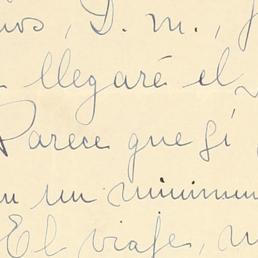 D. m.,
llegaré el
Parece que si
un minimum
El viaje,